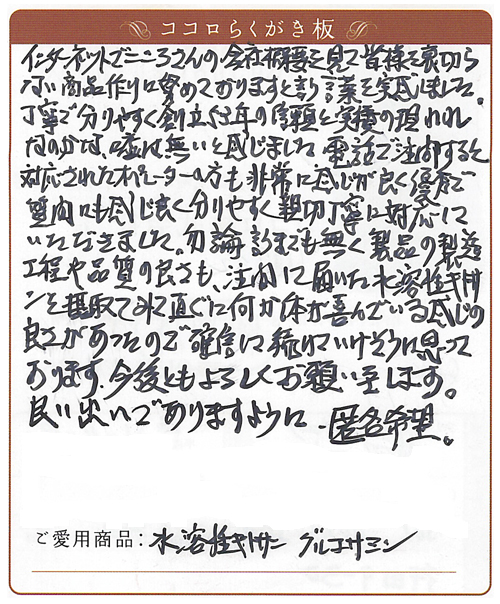 ココロらくがき板
インターネットでこころさんの会社概要を見て皆様を裏切ら
ない商品作りに努めておりますと言う言葉を実感しました。
丁寧で分りやすく創立 年の信頼と実積の現われ
なのかな、嘘は無いと感じました。電話で注文すると
対応されたオペレーターの方も非常に感じが良く優秀で
質問にも感じ良く分りやすく親切丁寧に対応して
いただきました。勿論 までも無く製品の製造
工程や品質の良さも、注文して届いた水溶性キトサ
ンを摂取してみて直ぐに何か体が喜んでいる感じの
良さがあったので確信して続けていけそうに思って
おります。今後ともよろしくお願い致します。
良い出いでありますように。匿名希望。
ご愛用商品：水溶性キトサン グルコサミン